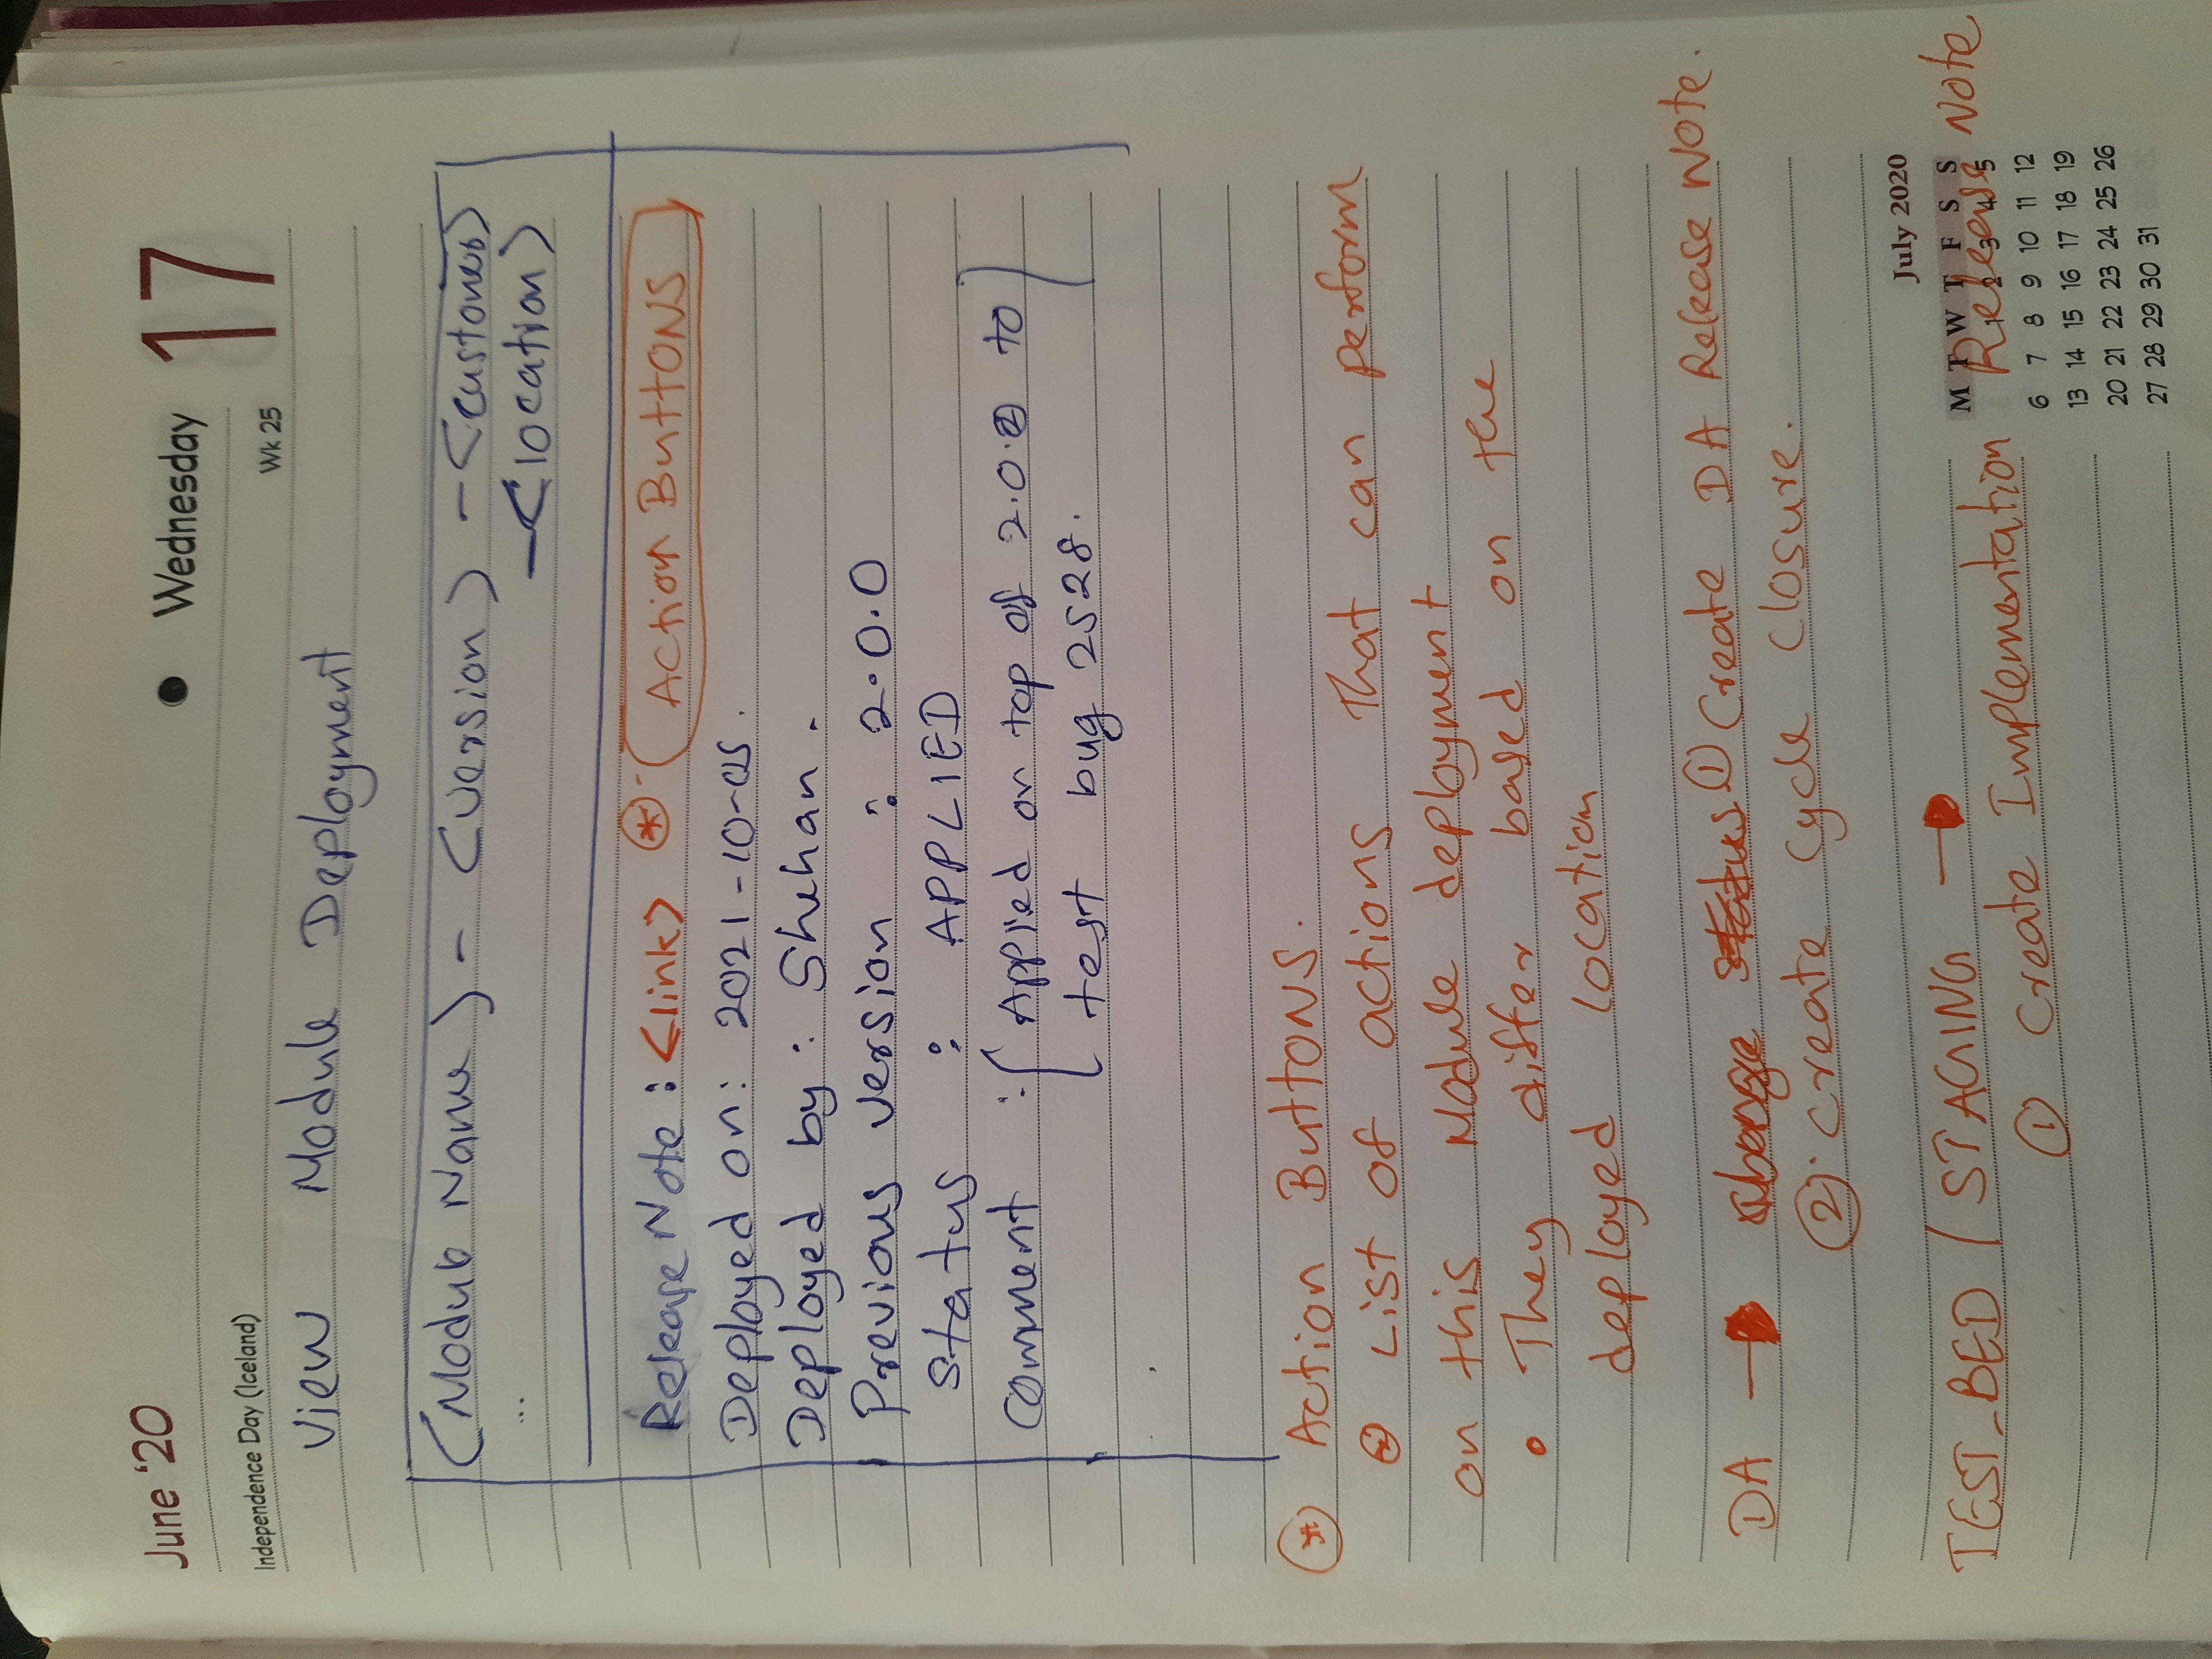 June '20
Wednesday 17
Independence Day (Iceland)
Wk 25
View Module Deployment
<Module Name> - <version> - <customer>
...
- <location>
Release Note : <link> * - Action Buttons
Deployed on: 2021-10-05.
Deployed by : Shehan.
Previous version : 2.0.0
Status : APPLIED
Comment : Applied on top of 2.0.0 to
test bug 2528.
* Action Buttons.
List of actions that can perform
on this Module deployment
• They differ based on the
deployed location
DA → change status ① Create DA Release Note.
②. Create Cycle Closure.
TEST_BED / STAGING →
① Create Implementation Release Note
July 2020
M T W T F S S
1 2 3 4 5
6 7 8 9 10 11 12
13 14 15 16 17 18 19
20 21 22 23 24 25 26
27 28 29 30 31